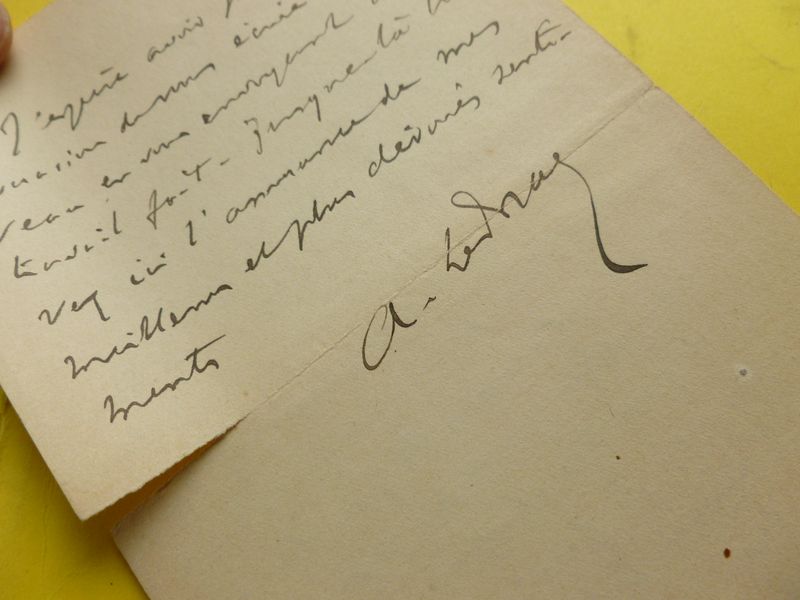 J'espère avoir
occasion de vous écrire
veau en vous envoyant
travail fait. Jusque là
vez ici l'assurance de mes
meilleurs et plus dévoués senti-
ments
A. Ledray